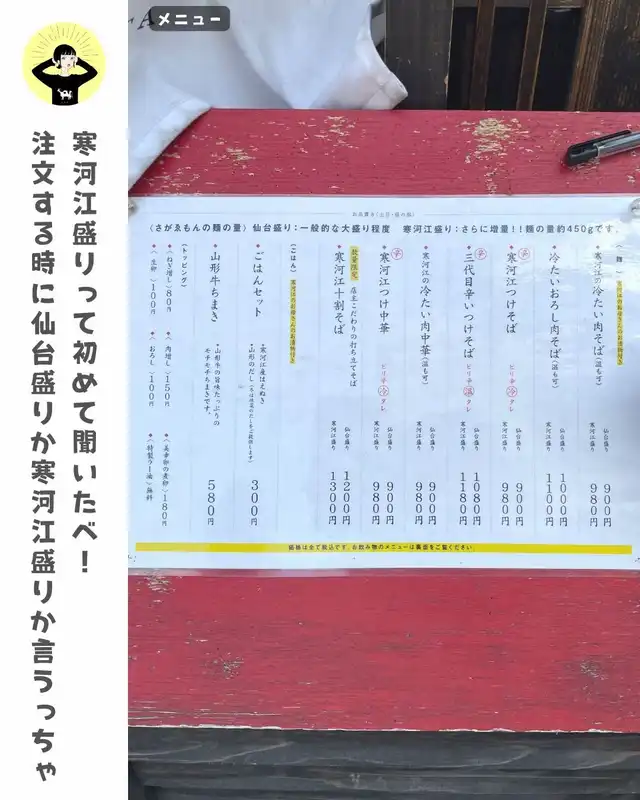 メニュー
寒河江盛りって初めて聞いたべ!
注文する時に仙台盛りか寒河江盛りか言うっちゃ
〈さがゑもんの麺の量〉仙台盛り:一般的な大盛り程度 寒河江盛り:さらに増量!!麺の量約450gです。
(麺)
寒河江の冷たい肉そば(温も可)
仙台盛り 900円
寒河江盛り 980円
冷たいおろし肉そば(温も可)
仙台盛り 1000円
寒河江盛り 1100円
辛
寒河江つけそば
ピリ辛冷タレ
仙台盛り 900円
寒河江盛り 980円
辛
三代目辛いつけそば
ピリ辛温タレ
仙台盛り 1080円
寒河江盛り 1180円
寒河江の冷たい肉中華(温も可)
仙台盛り 900円
寒河江盛り 980円
辛
寒河江つけ中華
ピリ辛冷タレ
仙台盛り 900円
寒河江盛り 980円
数量限定
店主こだわりの打ち立てそば
寒河江十割そば
仙台盛り 1200円
寒河江盛り 1300円
(ごはん)
ごはんセット
・寒河江産はえぬき
・山形のだし
300円
山形牛ちまき
・山形牛の旨味たっぷりの
モチモチちまきです。
580円
(トッピング)
(ねぎ増し)80円
(肉増し)150円
(生卵)100円
(おろし)100円
180円
(特製ラー油)無料
価格は全て税込です。お飲み物のメニューは裏面をご覧ください